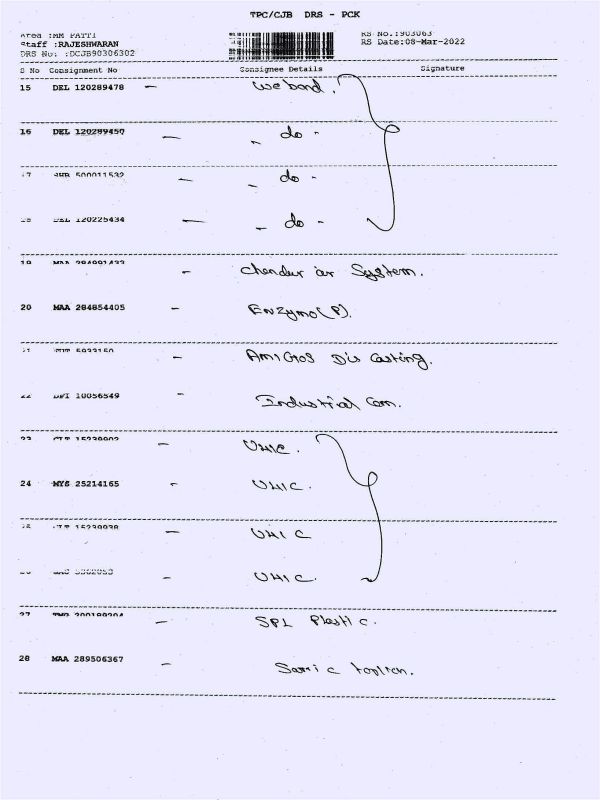 TPC/CJB DRS - PCK
Area :MM PATTI
Staff :RAJESHWARAN
DRS No: :DCJB90306302
RS No.:903063
RS Date:08-Mar-2022
S No Consignment No Consignee Details Signature
15 DEL 120289478 - We bond.
16 DEL 120289450 - - do -
500011532 - - do -
DEL 120225434 - - do -
19 MAA - Chendur air System.
20 MAA 284854405 - Enzymo(P).
- Amigos Die Casting.
10056549 - Industrial Com.
23 - UHIC.
24 MYS 25214165 - UHIC.
- UHIC
- UHIC.
27 - SPL Plastic.
28 MAA 289506367 -